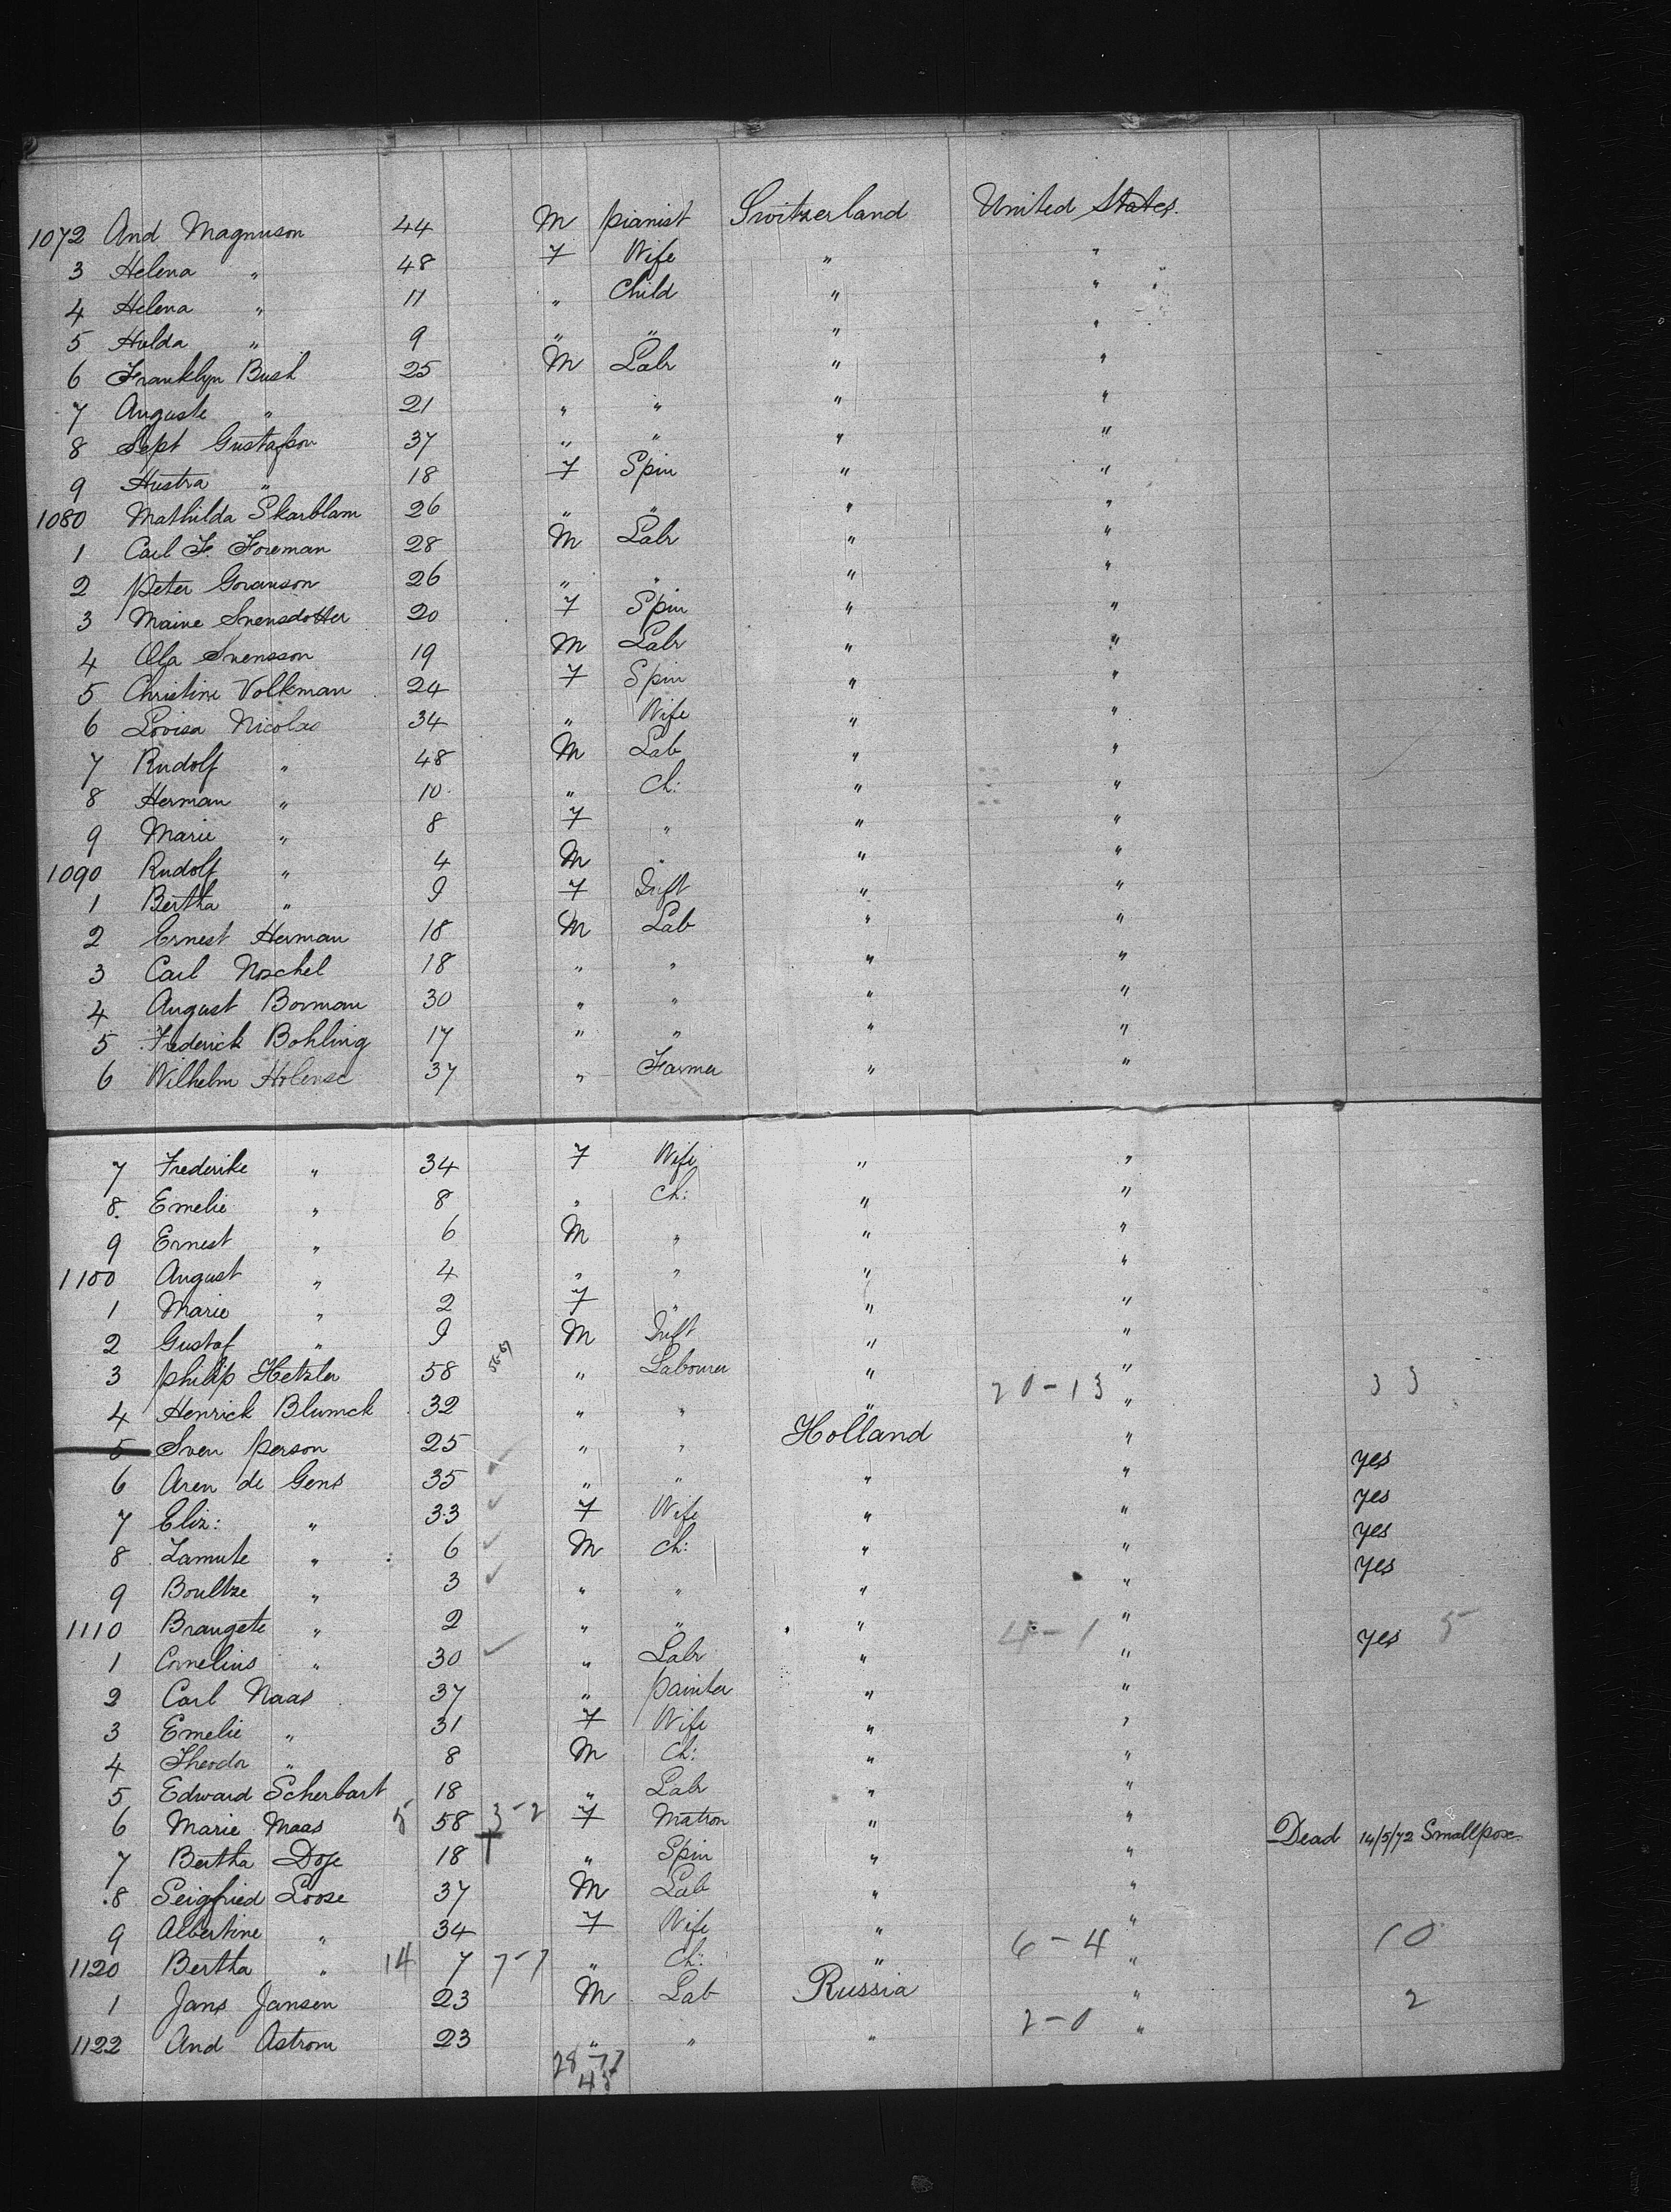 1072 And Magnuson 44 M pianist Switzerland United States.
3 Helena " 48 F Wife " "
4 Helena " 11 " Child " "
5 Hulda " 9 " " " "
6 Franklyn Bush 25 M Labr " "
7 Auguste " 21 " " " "
8 Sept Gustafson 37 " " " "
9 Hustra " 18 F Spin " "
1080 Mathilda Skarblam 26 " " " "
1 Carl F. Foreman 28 M Labr " "
2 Peter Goranson 26 " " " "
3 Maine Svensdotter 20 F Spin " "
4 Ola Svensson 19 M Labr " "
5 Christine Volkman 24 F Spin " "
6 Lovisa Nicolas 34 " Wife " "
7 Rudolf " 48 M Lab " "
8 Herman " 10 " Ch: " "
9 Marie " 8 F " " "
1090 Rudolf " 4 M " " "
1 Bertha " 9 F Inft " "
2 Ernest Herman 18 M Lab " "
3 Carl Noschel 18 " " " "
4 August Borman 30 " " " "
5 Frederick Bohling 17 " " " "
6 Wilhelm 37 " Farmer " "
7 Frederike " 34 F Wife " "
8. Emelie " 8 " Ch: " "
9 Ernest " 6 M " " "
1100 August " 4 " " " "
1 Marie " 2 F " " "
2 Gustaf " 9 M Inft " "
3 philip Hetzler 58 " Labourer " "
20-13 33
4 Henrick Blumck 32 " " " "
5 Sven person 25 " " Holland "
6 Aren de Gens 35 ✓ " " " " yes
7 Eliz: " 33 ✓ F Wife " " yes
8 Lamute " 6 ✓ M Ch: " " yes
9 Boultze " 3 ✓ " " " " yes
1110 Braugete " 2 " " " "
4-1 yes 5
1 Cornelius " 30 ✓ " Labr " "
2 Carl Naas 37 " painter " "
3 Emelie " 31 F Wife " "
4 Theodor " 8 M Ch: " "
5 Edward Scherbart 18 " Labr " "
6 Marie Maas 5 58 3-2 F Matron " "
7 Bertha Doje 18 † " Spin " " Dead 14/5/72 Smallpox
8 Seigfried Loose 37 M Lab " "
9 Albertine " 34 F Wife " "
6-4 10
1120 Bertha " 14 7 7-7 " Ch: " "
1 Jans Jansen 23 M Lab Russia "
2-0 2
1122 And Astrom 23 " " " "
28-17
45